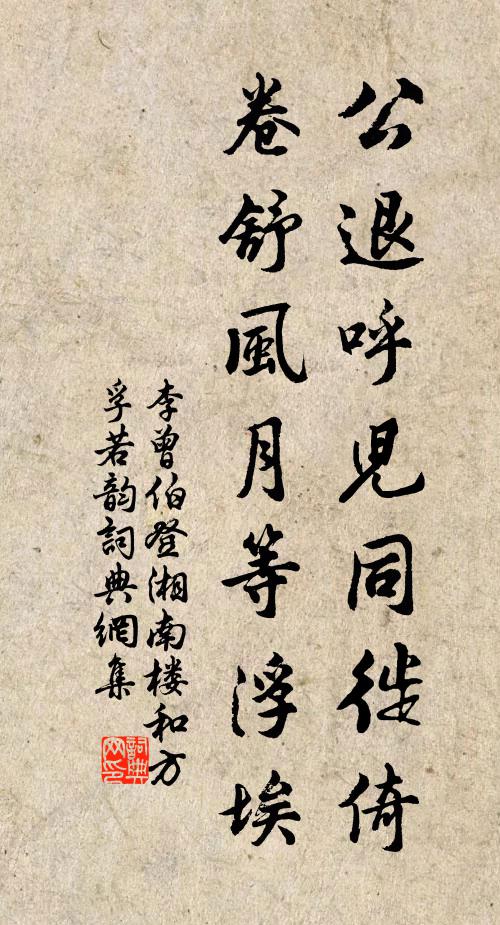 公退呼兒同徙倚
卷舒風月等浮埃
李曾伯登湘南楼和方
孚若韵詞典網集
詞典網印